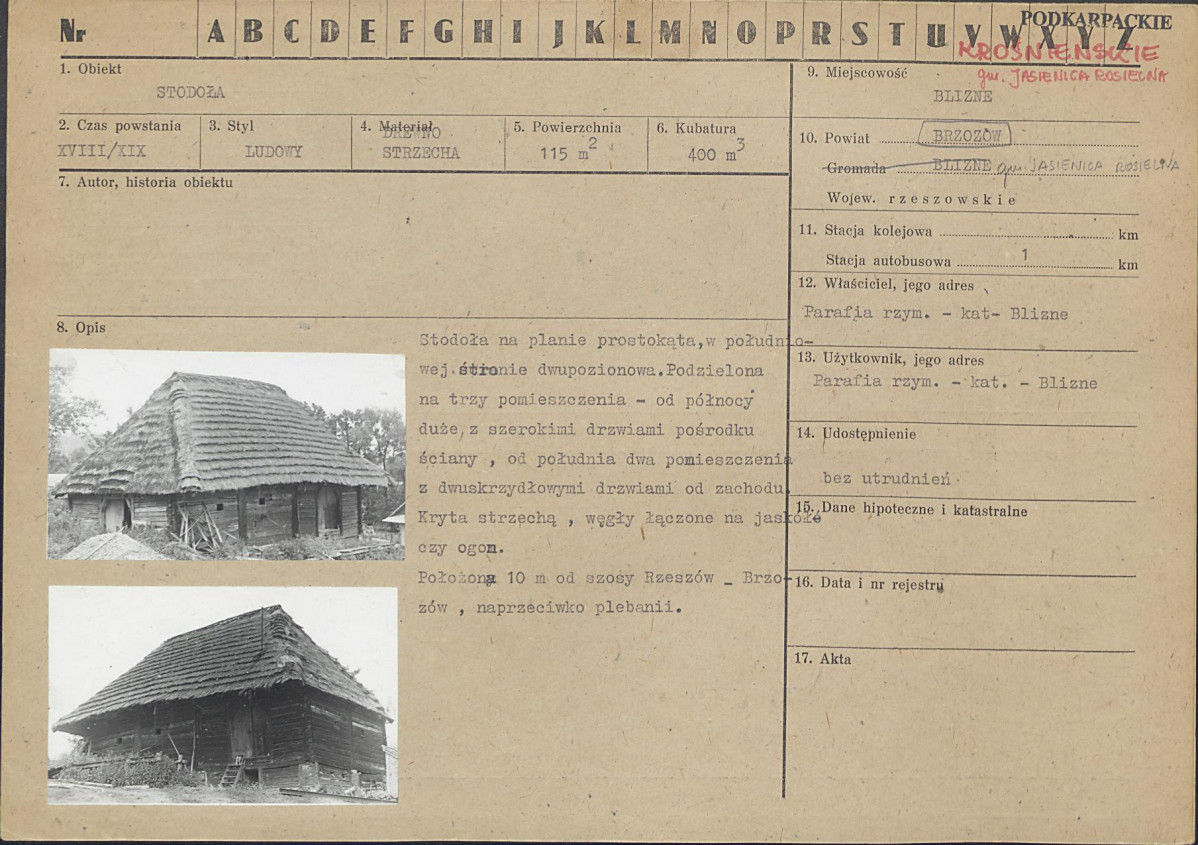 Nr A B C D E F G H I J K L M N O P R S T U V W X Y Z
PODKARPACKIE
KROŚNIEŃSKIE
gm. JASIENICA ROSIELNA
1. Obiekt
STODOŁA
2. Czas powstania
XVIII/XIX
3. Styl
LUDOWY
4. Materiał
DREWNO
STRZECHA
5. Powierzchnia
115 m2
6. Kubatura
400 m3
7. Autor, historia obiektu
8. Opis
Stodoła na planie prostokąta,w południo-
wej stronie dwupozionowa.Podzielona
na trzy pomieszczenia - od północy
duże z szerokimi drzwiami pośrodku
ściany , od południa dwa pomieszczenia
z dwuskrzydłowymi drzwiami od zachodu.
Kryta strzechą , węgły łączone na jaskółe
czy ogon.
Położona 10 m od szosy Rzeszów - Brzo-
zów , naprzeciwko plebanii.
9. Miejscowość
BLIZNE
10. Powiat BRZOZÓW
Gromada BLIZNE gm. JASIENICA ROSIELNA
Wojew. rzeszowskie
11. Stacja kolejowa km
Stacja autobusowa 1 km
12. Właściciel, jego adres
Parafia rzym. - kat- Blizne
13. Użytkownik, jego adres
Parafia rzym. - kat. - Blizne
14. Udostępnienie
bez utrudnień
15. Dane hipoteczne i katastralne
16. Data i nr rejestru
17. Akta